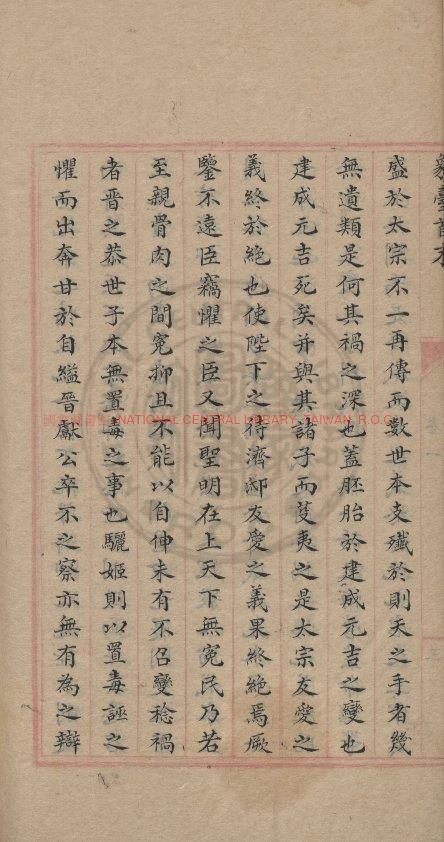 盛於太宗不一再傳而數世本支殲於則天之手者幾
無遺類是何其禍之深也蓋胚胎於建成元吉之變也
建成元吉死矣并與其諸子而芟夷之是太宗友愛之
義終於絶也使陛下之待濟邸友愛之義果終絶焉厥
鑒不遠臣竊懼之臣又聞聖明在上天下無冤民乃若
至親骨肉之間冤抑且不能以自伸未有不召變稔禍
者晉之恭世子本無置毒之事也驪姬則以置毒誣之
懼而出奔甘於自縊晉獻公卒不之察亦無有為之辯
國立中央圖書館 NATIONAL CENTRAL LIBRARY, TAIWAN, R.O.C.